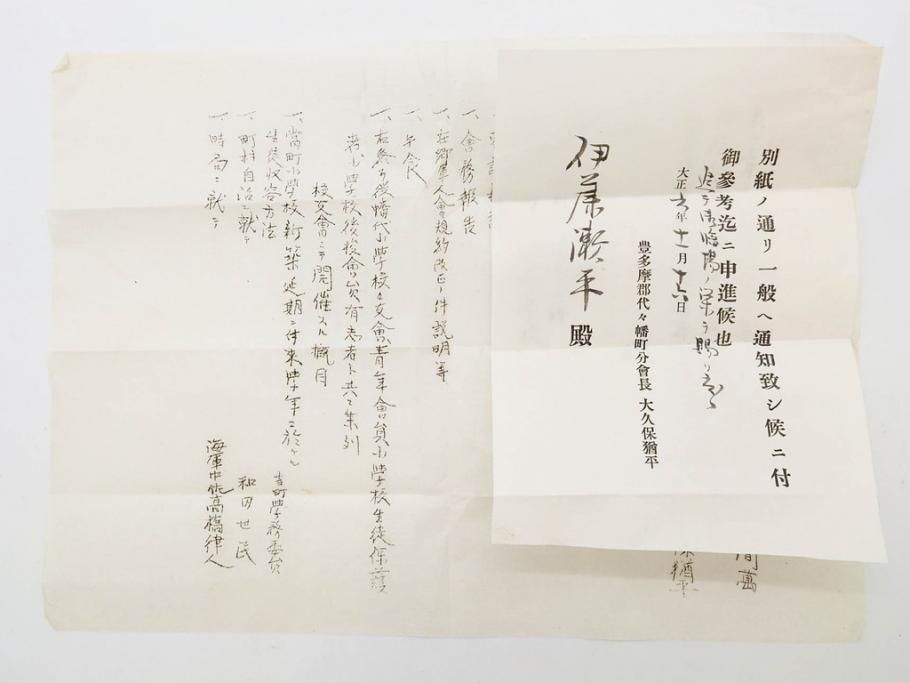 別紙ノ通リ一般ヘ通知致シ候ニ付
御參考迄ニ申進候也
追テ御臨場ノ榮ヲ賜リ度
大正六年十一月十六日
豊多摩郡代々幡町分會長 大久保猶平
伊藤瀨平殿
間萬
保猶平
一、會務報告
一、在郷軍人會規約改正ノ件説明等
一、午食
一、右終テ後幡代小學校々友會青年會員小學校生徒保護
者小學校後援會員有志者ト共ニ集列
校友會ニテ開催スル概目
一、當町小學校新築延期ニ付來學年ニ於ケル
生徒收容方法
吉町學務委員
和田世民
一、町村自治ニ就テ
一、時局ニ就テ
海軍中佐高橋律人